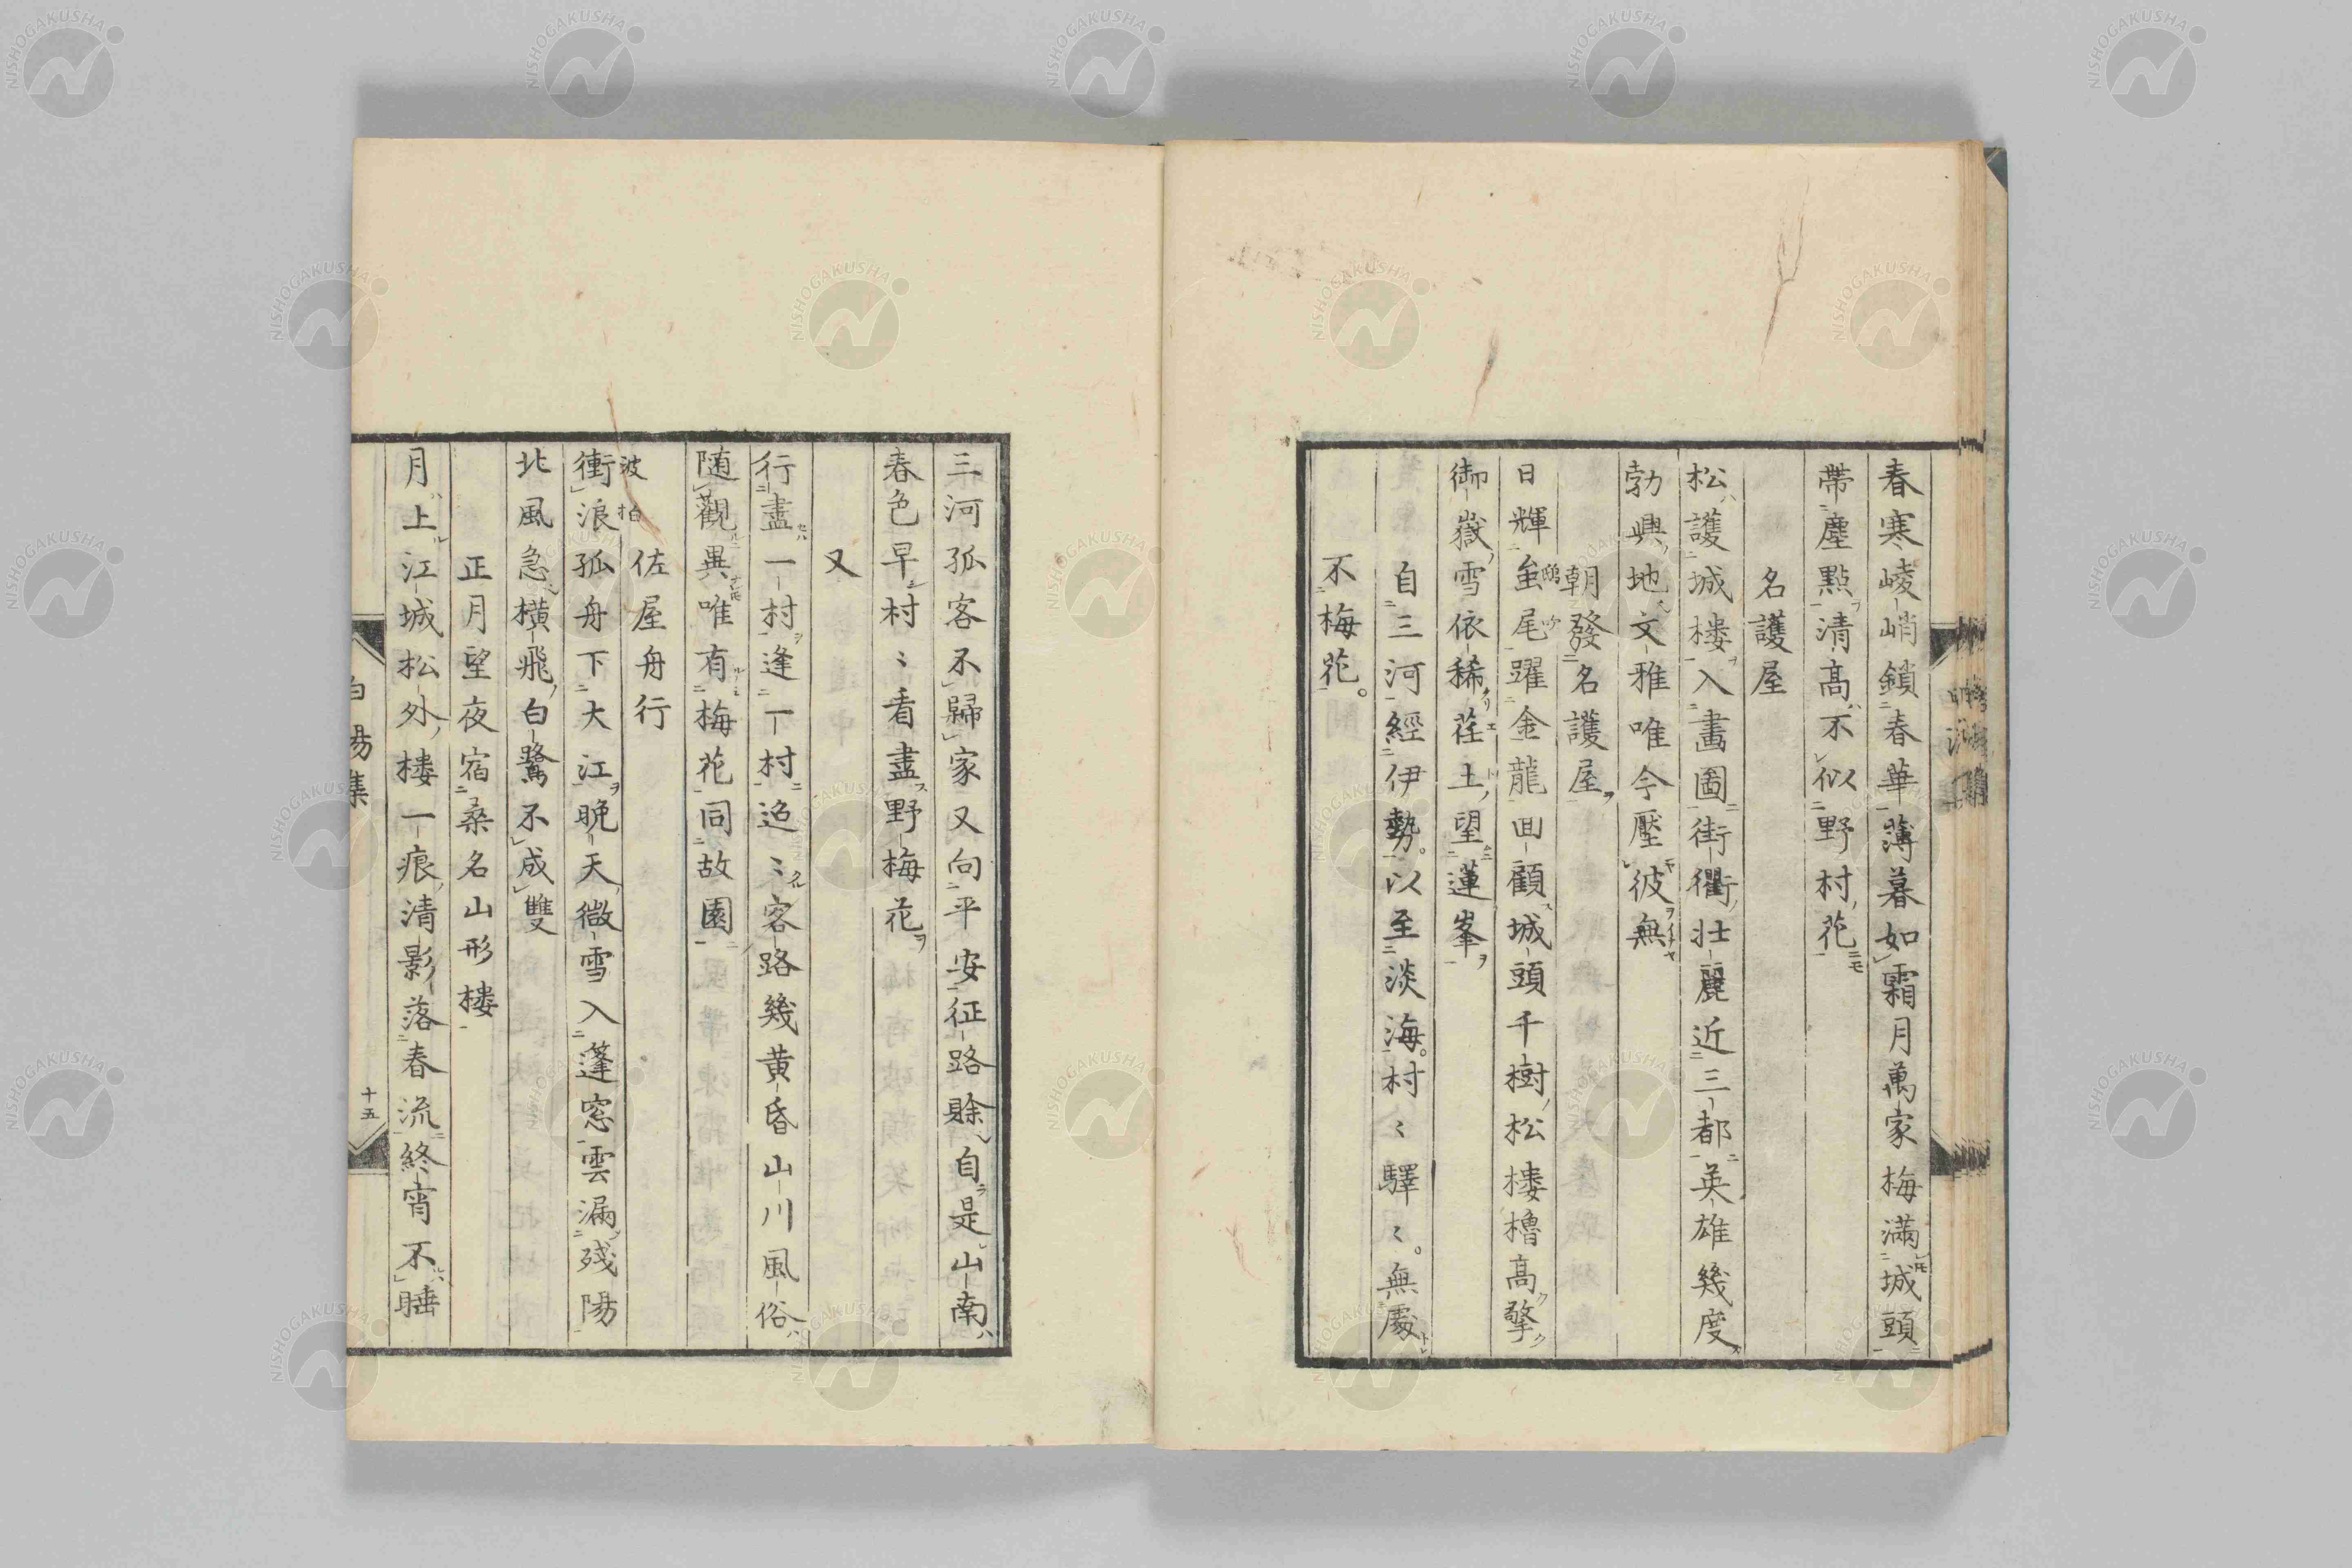 春寒崚峭鎖春華薄暮如霜月萬家梅滿城頭
帶塵點清高不似野村花
名護屋
松護城楼入畵圖街衢壮麗近三都英雄幾度
勃興地文雅唯今壓彼無
朝發名護屋
日輝鴟尾躍金龍回顧城頭千樹松楼櫓高擎
御嶽雪依稀荏土望蓮峯
自三河經伊勢。以至淡海。村〻驛〻。無處
不梅花。
三河孤客不歸家又向平安征路賒自是山南
春色早村〻看盡野梅花
又
行盡一村逢一村迢〻客路幾黄昏山川風俗
随觀異唯有梅花同故園
佐屋舟行
波拍
衝浪孤舟下大江晩天微雪入蓬窓雲漏残陽
北風急横飛白鷺不成雙
正月望夜宿桑名山形楼
月上江城松外楼一痕清影落春流終宵不睡
白陽集
十五